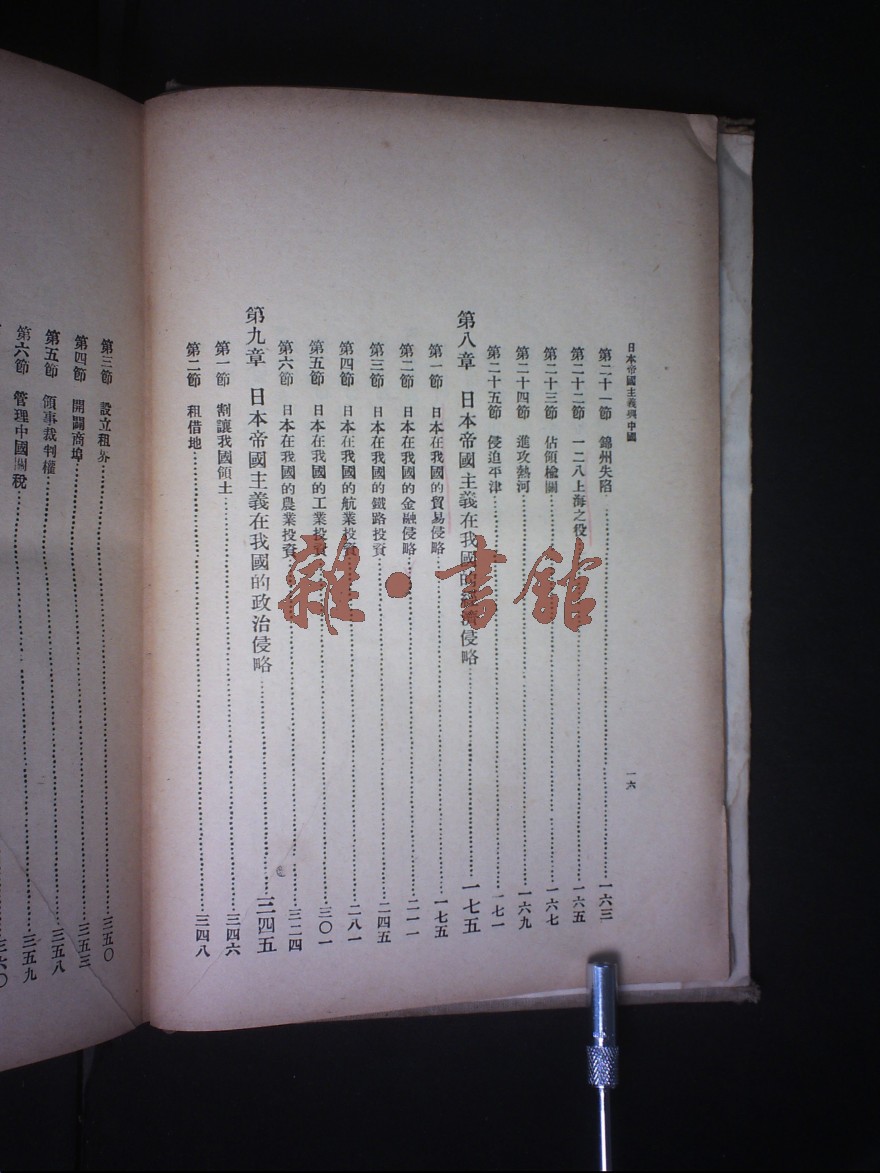 日本帝國主義與中國
一六
第二十一節 錦州失陷 一六三
第二十二節 一二八上海之役 一六五
第二十三節 佔領楡關 一六七
第二十四節 進攻熱河 一六九
第二十五節 侵迫平津 一七一
第八章 日本帝國主義在我國的經濟侵略 一七五
第一節 日本在我國的貿易侵略 一七五
第二節 日本在我國的金融侵略 二一一
第三節 日本在我國的鐵路投資 二四五
第四節 日本在我國的航業投資 二八一
第五節 日本在我國的工業投資 三〇一
第六節 日本在我國的農業投資 三二四
第九章 日本帝國主義在我國的政治侵略 三四五
第一節 割讓我國領土 三四六
第二節 租借地 三四八
第三節 設立租界 三五〇
第四節 開闢商埠 三五三
第五節 領事裁判權 三五八
第六節 管理中國關稅 三五九
三六〇
雜·書館